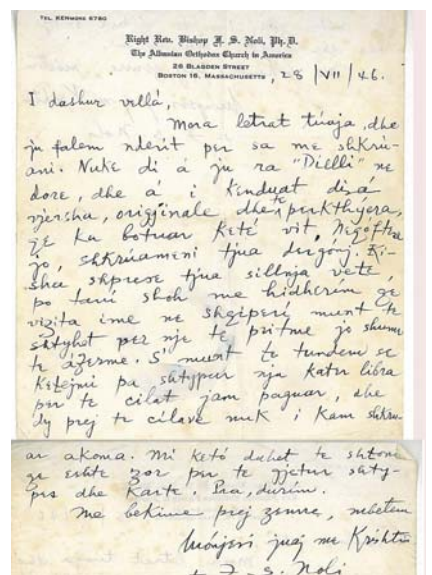 TEL. KENMORE 6790
Right Rev. Bishop F. S. Noli, Ph. D.
The Albanian Orthodox Church in America
26 BLAGDEN STREET
BOSTON 16, MASSACHUSETTS, 28 | VII | 46.
I dashur vëlla,
Mora letrat tuaja, dhe
ju falem nderit per sa me shkru-
ani. Nuke di á ju ra "Dielli" ne
dore, dhe á i kenduat disá
vjersha, origjinale dhe te perkthýera,
qe ka botuar ketë vit. Negoftse
jo, shkrúameni tjua dergónj. Ki-
sha shprese tjua sillnja vete,
po tani shoh me hidherim qe
vizita ime ne Shqiperi munt te
shtyhet per nje te pritme jo shume
te aferme. S' munt te tundem se
ketejmi pa shtypur nja kater libra
per te cilat jam paguar, dhe
dy prej te cilave nuk i kam shkru-
ar akoma. Mi ketó duhet te shtoni
qe eshte zor per te gjetur shty-
pes dhe karte. Pra, durim.
Me bekime prej zemre, mbetem
juaj me Krishtin
+ F. S. Noli